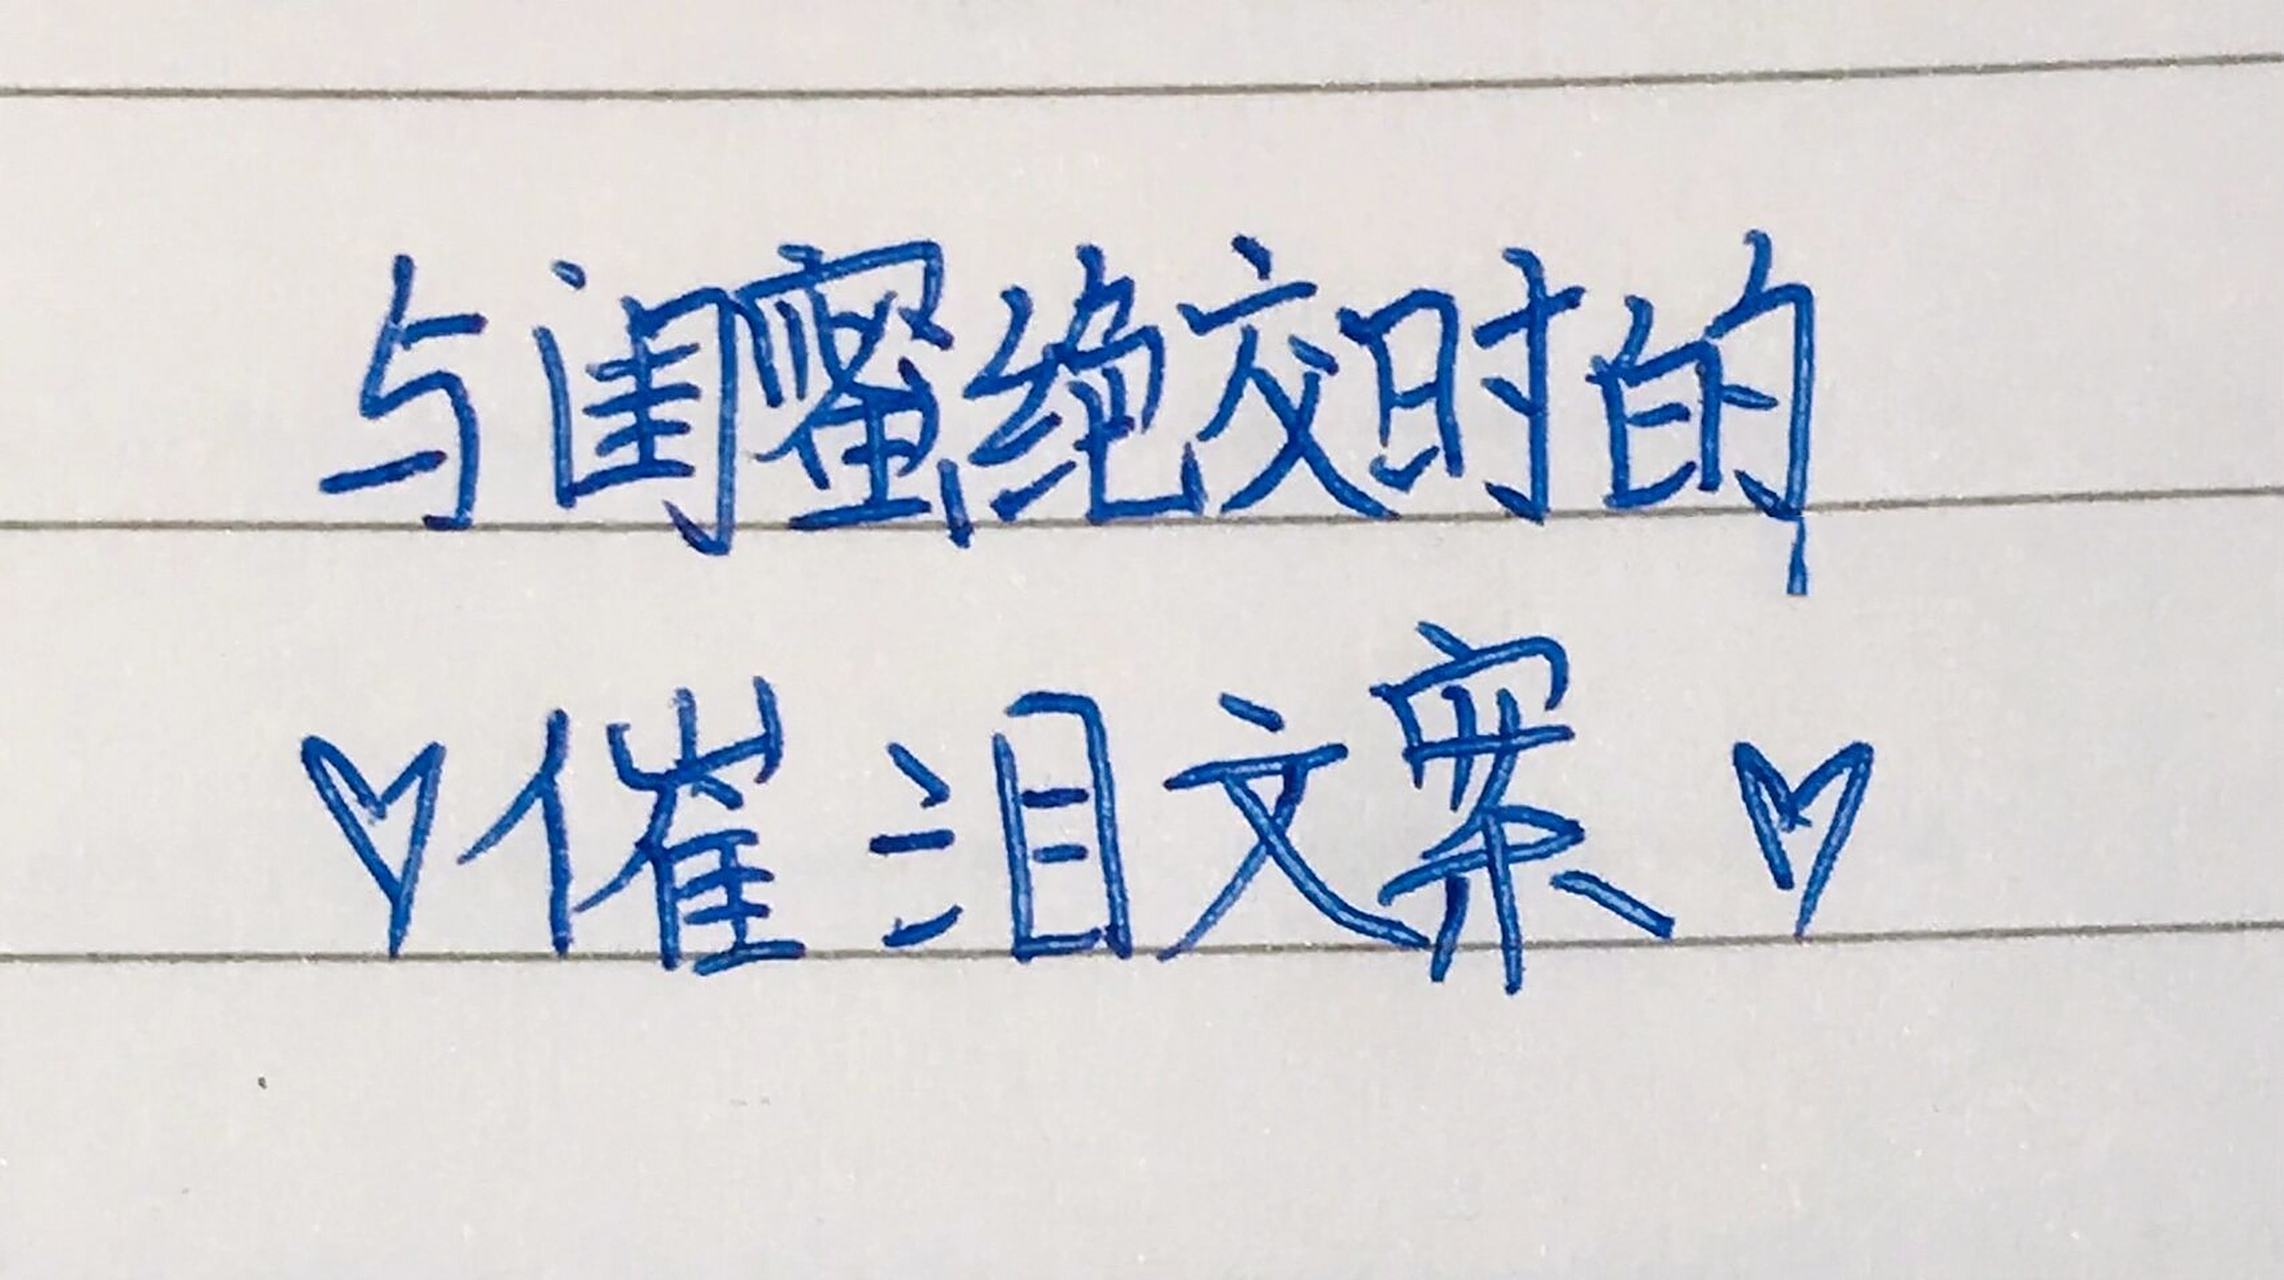 与闺蜜绝交时的
♡催泪文案♡